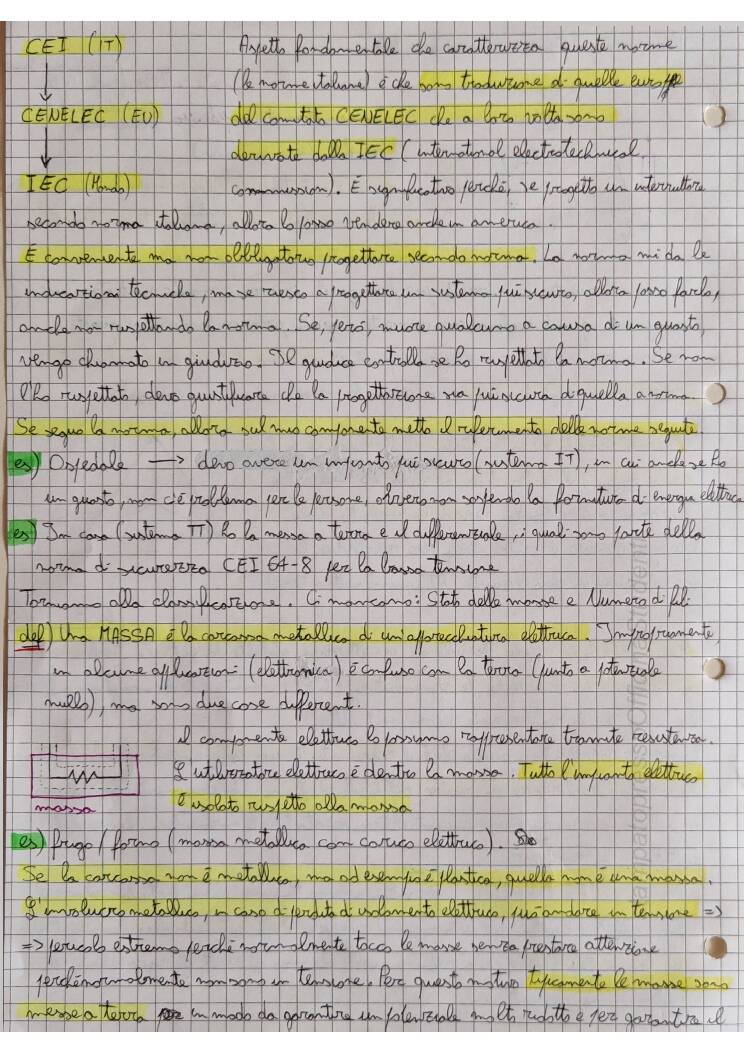 CEI (IT) Aspetto fondamentale che caratterizza queste norme
(le norme italiane) è che sono traduzione di quelle europee
CENELEC (EU) del comitato CENELEC che a loro volta sono
derivate dalla IEC (international electrotechnical
IEC (Mondo) commission). È significativo perché, se progetto un interruttore
secondo norma italiana, allora lo posso vendere anche in america.
È conveniente ma non obbligatorio progettare secondo norma. La norma mi da le
indicazioni tecniche, ma se riesco a progettare un sistema più sicuro, allora posso farlo,
anche non rispettando la norma. Se, però, muore qualcuno a causa di un guasto,
vengo chiamato in giudizio. Il giudice controlla se ho rispettato la norma. Se non
l'ho rispettato, devo giustificare che la progettazione sia più sicura di quella a norma.
Se seguo la norma, allora sul mio componente metto il riferimento delle norme seguite.
es) Ospedale → devo avere un impianto più sicuro (sistema IT), in cui anche se ho
un guasto, non c'è problema per le persone, ovvero non sospendo la fornitura di energia elettrica
es) In casa (sistema TT) ho la messa a terra e il differenziale, i quali sono parte della
norma di sicurezza CEI 64-8 per la bassa tensione
Torniamo alla classificazione. Ci mancano: Stato delle masse e Numero di fili
def) Una MASSA è la carcassa metallica di un'apparecchiatura elettrica. Impropriamente,
in alcune applicazioni (elettronica) è confuso con la terra (punto a potenziale
nullo), ma sono due cose different.
il componente elettrico lo possiamo rappresentare tramite resistenza.
L'utilizzatore elettrico è dentro la massa. Tutto l'impianto elettrico
massa è isolato rispetto alla massa
es) frigo / forno (massa metallica con carico elettrico).
Se la carcassa non è metallica, ma ad esempio è plastica, quella non è una massa.
L'involucro metallico, in caso di perdita di isolamento elettrico, può andare in tensione =>
=> pericolo estremo perché normalmente tocco le masse senza prestare attenzione
perché normalmente non sono in tensione. Per questo motivo tipicamente le masse sono
messe a terra in modo da garantire un potenziale molto ridotto e per garantire il